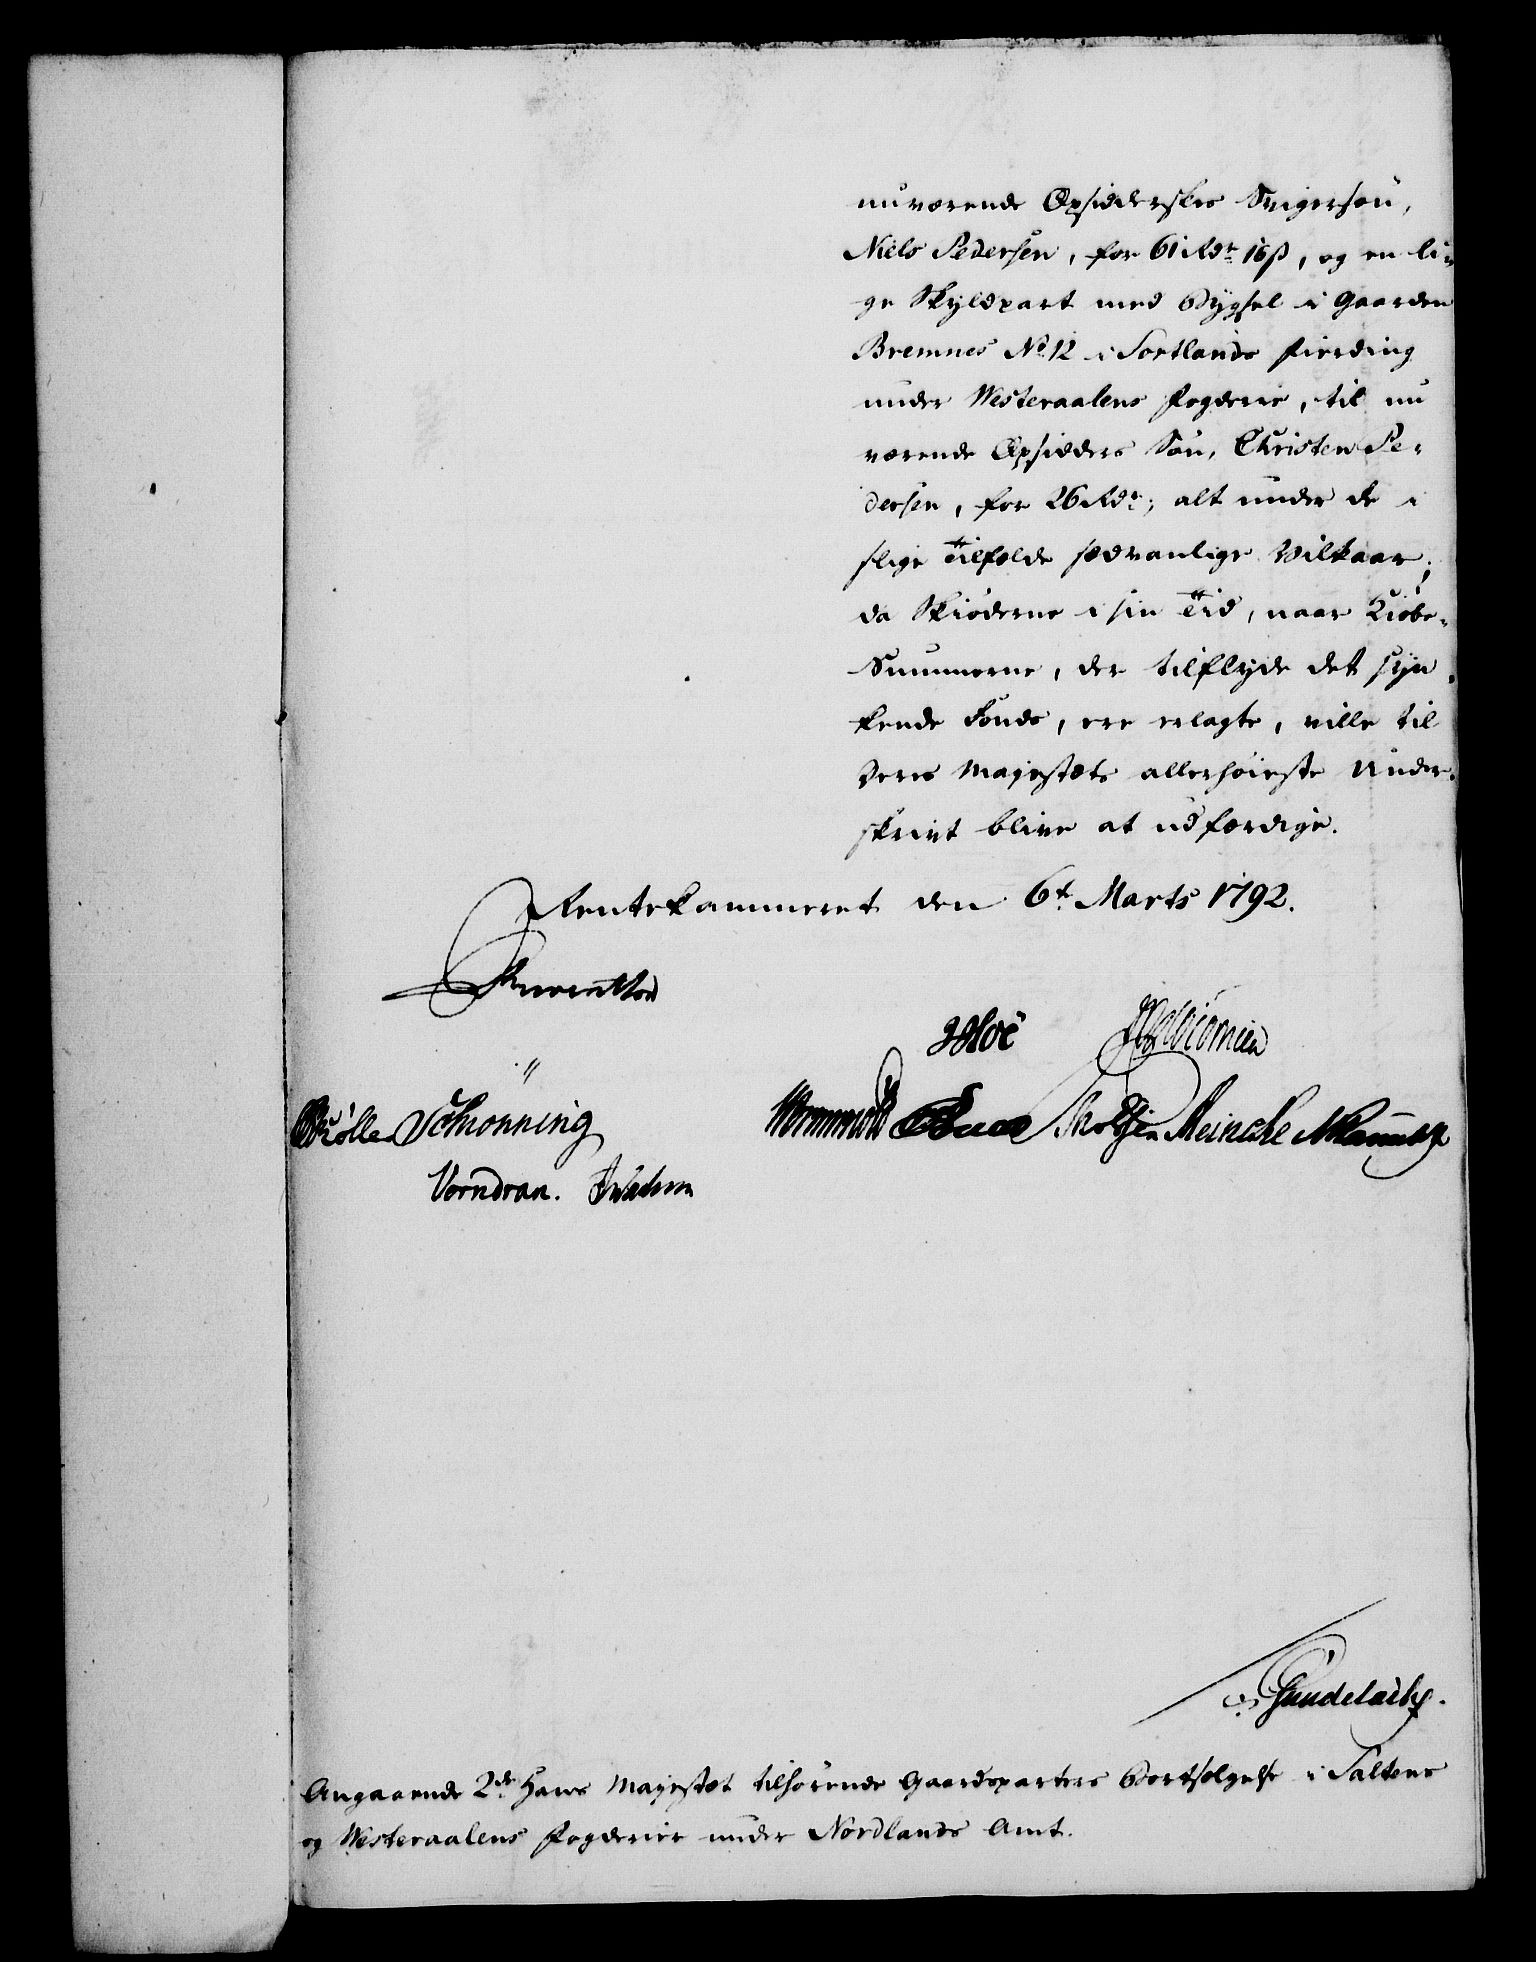 nuværende Opsidderskes Svigersøn,
Niels Pedersen, for 61 Rdr 16 ß, og en li-
ge Skyldpart med Bygsel i Gaarden
Bremnes No 12 i Sortlands Fierding
under Westeraalens Fogderie, til nu
værende Opsidders Søn, Christen Pe-
dersen, for 26 Rdr; alt under de i
slige Tilfælde sædvanlige Vilkaar;
da Skiøderne i sin Tid, naar Kiøbe-
Summerne, der tilflyde det syn-
kende Fonds, ere erlagte, ville til
Deres Majestæts allerhøieste Under-
skrivt blive at udfærdige.
Rentekammeret den 6t Marts 1792.
Reventlow
Hoë
Müller Schionning Wormskiold Meincke
Vorndran.
Gundelach.
Angaaende 2de Hans Majestæt tilhørende Gaardsparters Bortsælgelse i Saltens
og Westeraalens Fogderier under Nordlands Amt.